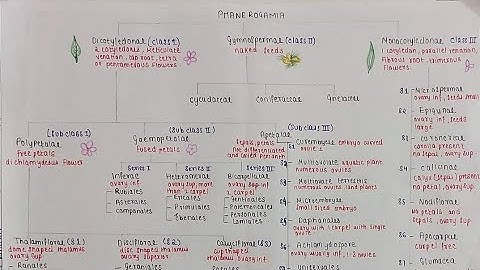 PHANEROGAMIA
Dicotyledonal (class I)
2 cotyledons, Reticulate
venation, tap root, tetra
or pentamerous flowers.
Gymnospermal (class II)
naked seeds
Monocotyledonal class III
1 cotyledon, parallel venation,
Fibrous root, trimerous
Flowers.
cycadaceae
coniferaceae
Gnetaceae
(Sub class I)
Polypetalae
Free petals
dichlamydeous flower
(Sub class II)
Gamopetalae
fused petals
(Sub class III)
Apetalae
Sepals, petals
Not differenciated
and called Perianth
Series I
Inferae
ovary inf.
- Rubiales
- Asterales
- companales
Series II
Heteromerae
ovary sup, more
than 2 carpel
- Ericales
- Primulales
- Ebenales
Series III
Bicarpellatae
ovary sup
2 carpel
- Gentianales
- Polemoniales
- Personales
- Lamiales
S1 - Curvembryae embryo curved
ovule 1
S2 - Multiovulate aquatic plant
numerous ovules
S3 - Multiovulate terrestris
numerous ovules, land plants
S4 - Microembryae
small sized embryo
S5 - Daphnales
ovary with 1 carpel with single
ovule
S6 - Achlamydosporae
ovary mostly inf, 1-3 ovules
- unisexuales
S1 - Microspermae
ovary inf, seeds small
S2 - Epigynae
ovary inf, seeds
large
S3 - coronarieae
corolla present
no sepal, ovary sup
S4 - calicinae
calyx (sepal) present
no petal, ovary sup
S5 - Nudiflorae
No petals and
sepals, ovary sup
S6 - Apocarpae
carpel free
S7 - Glumaceae
Thalamiflorae (S1)
dome shaped thalamus
ovary superior
- Ranales
Disciflorae (S2)
disc shaped thalamus
ovary superior
- Geraniales
Calyciflorae (S3)
cup shaped
thalamus, ovary inf.